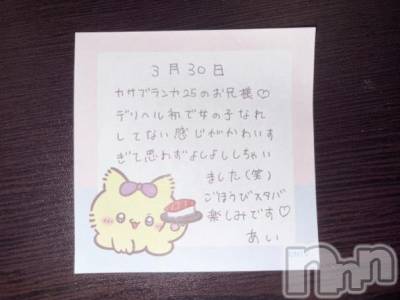 3月30日
カサブランカ25のお兄様♡
デリヘル初で女の子なれ
してない感じがかわいす
ぎて思わずよしよししちゃい
ました(笑)
ごほうびスタバ
楽しみです♡
あい
nnn